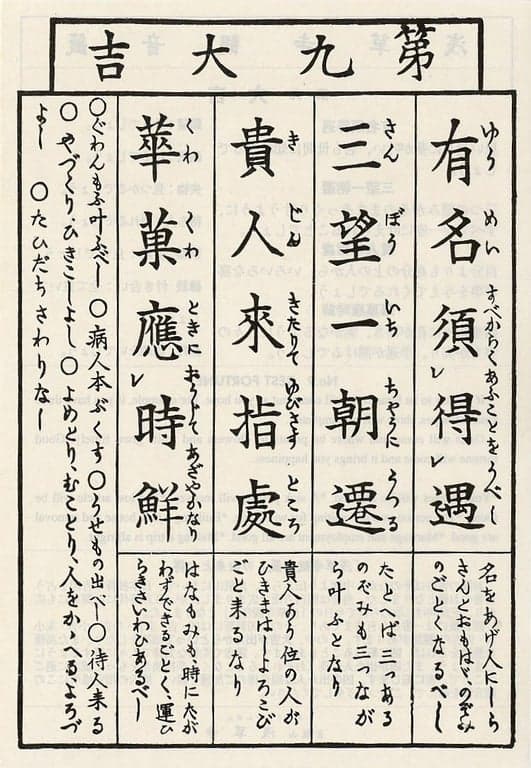 第九大吉
有名須レ得レ遇
ゆう めい すべからくあふことをうべし
名をあげ人にしら
さんとおもはゞのぞみ
のごとくなるべし
三望一朝遷
さん ぼう いつ ちやう うつる
たとへば三ある
のぞみも三なが
ら叶ふとなり
貴人來指處
き じん きたりてゆびさす ところ
貴人より位の人が
ひきまはしよろこび
ごと来るなり
華菓應レ時鮮
くわ くわ ときにおうじてあざやかなり
はなもみも時にたが
わずできるごとく運ひ
らきさいわひあるべし
○ぐわんもふ叶ふべし ○病人本ぶくす ○うせもの出べし ○待人来る
○やづくりひきこしよし ○よめとりむことり人をかゝへるよろづ
よし ○たびだちさわりなし